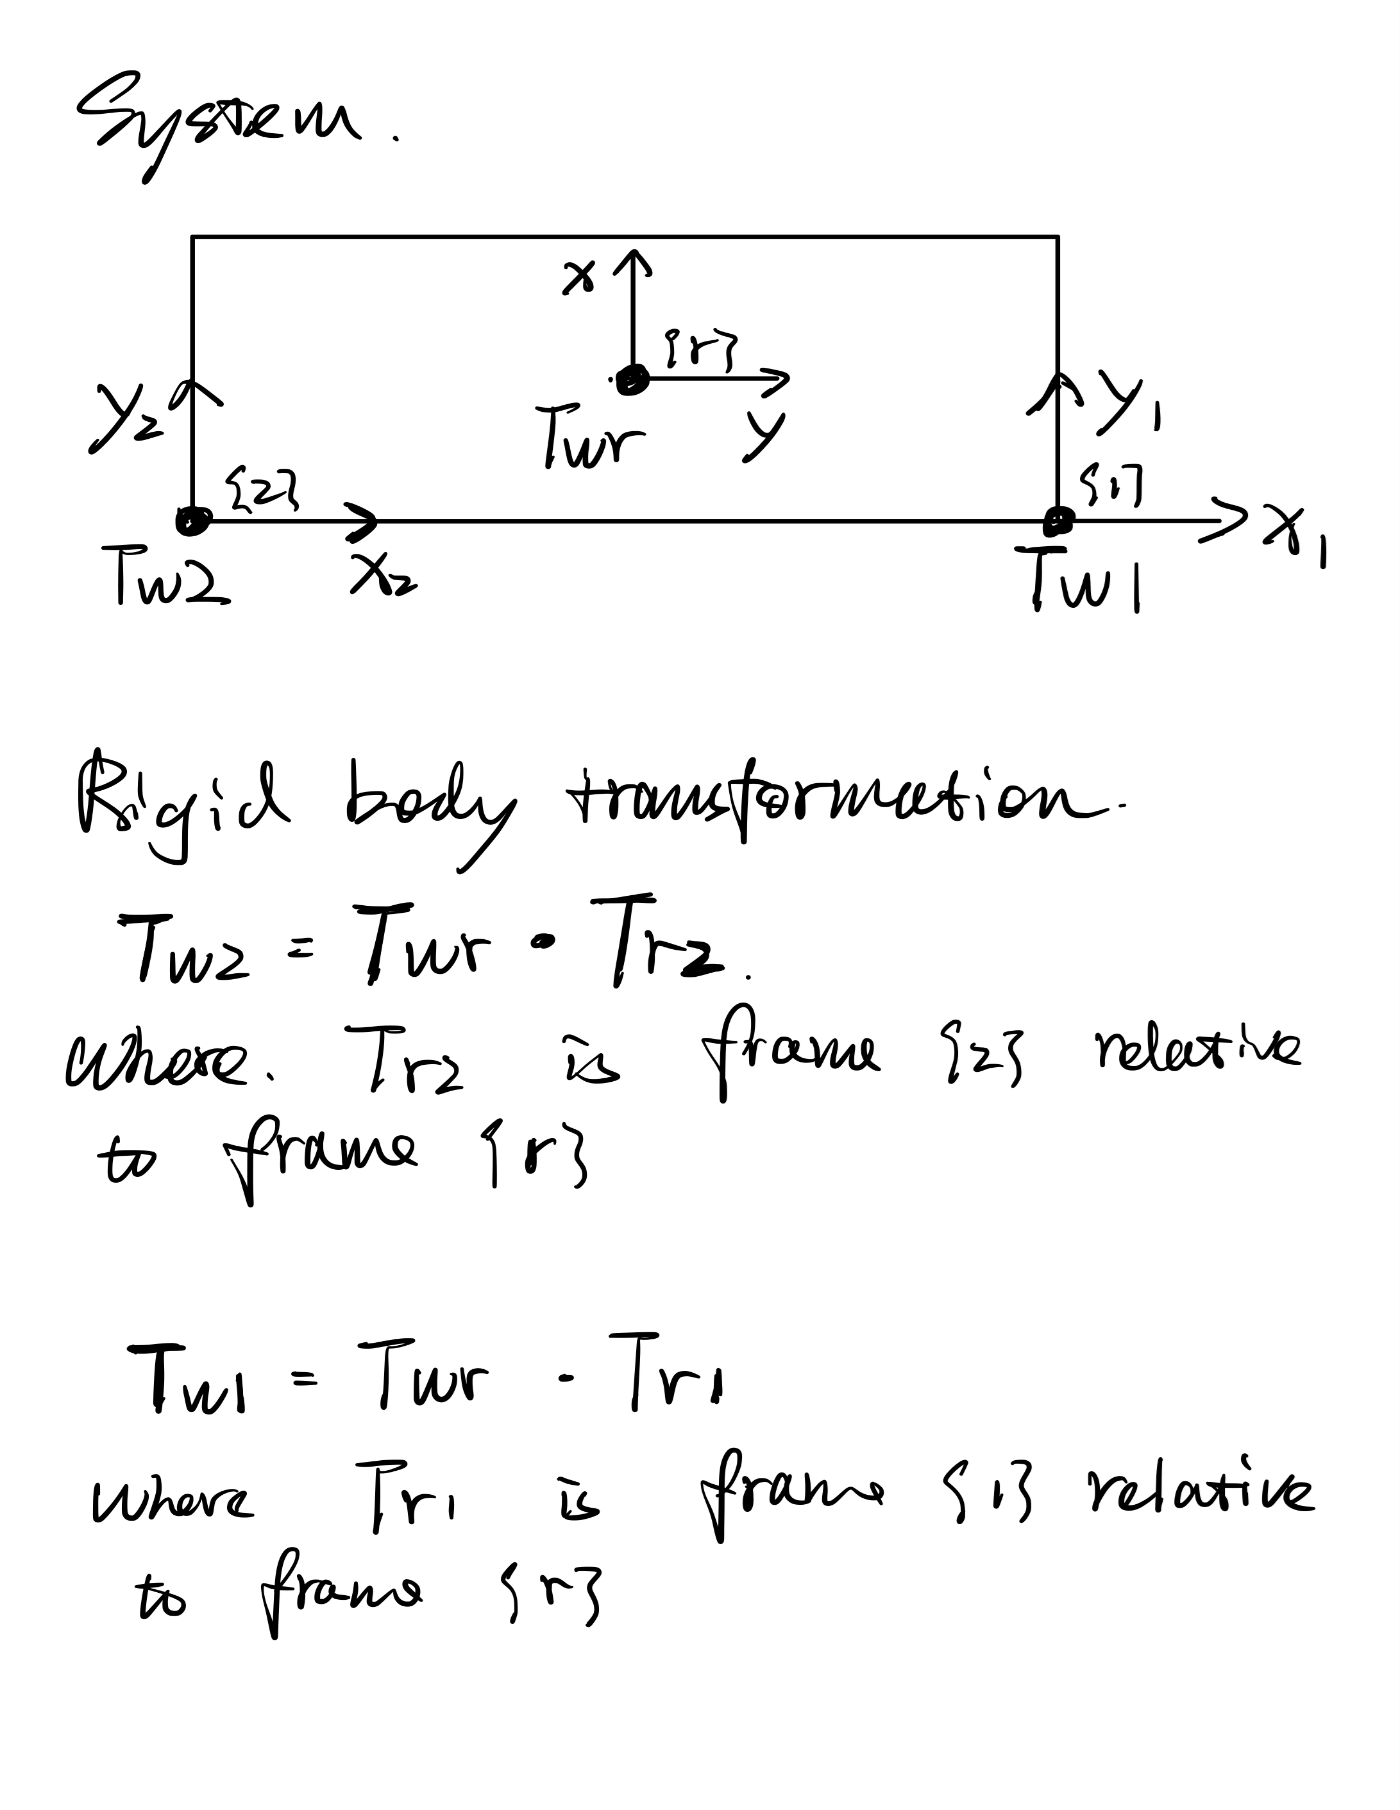 System.
x
{r}
y₂
Twr
y
y₁
{2}
{1}
Tw2
x₂
Tw1
x₁
Rigid body transformation.
Tw2 = Twr · Tr2.
where. Tr2 is frame {2} relative
to frame {r}
Tw1 = Twr · Tr1
where Tr1 is frame {1} relative
to frame {r}